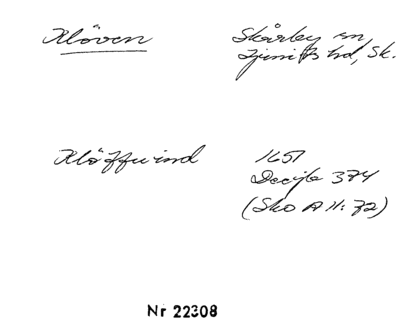 Klöven
Skårby sn,
Ljunits hd, Sk.
Klöffwind
1651
Decijb 374
(Sko A II: 72)
Nr 22308